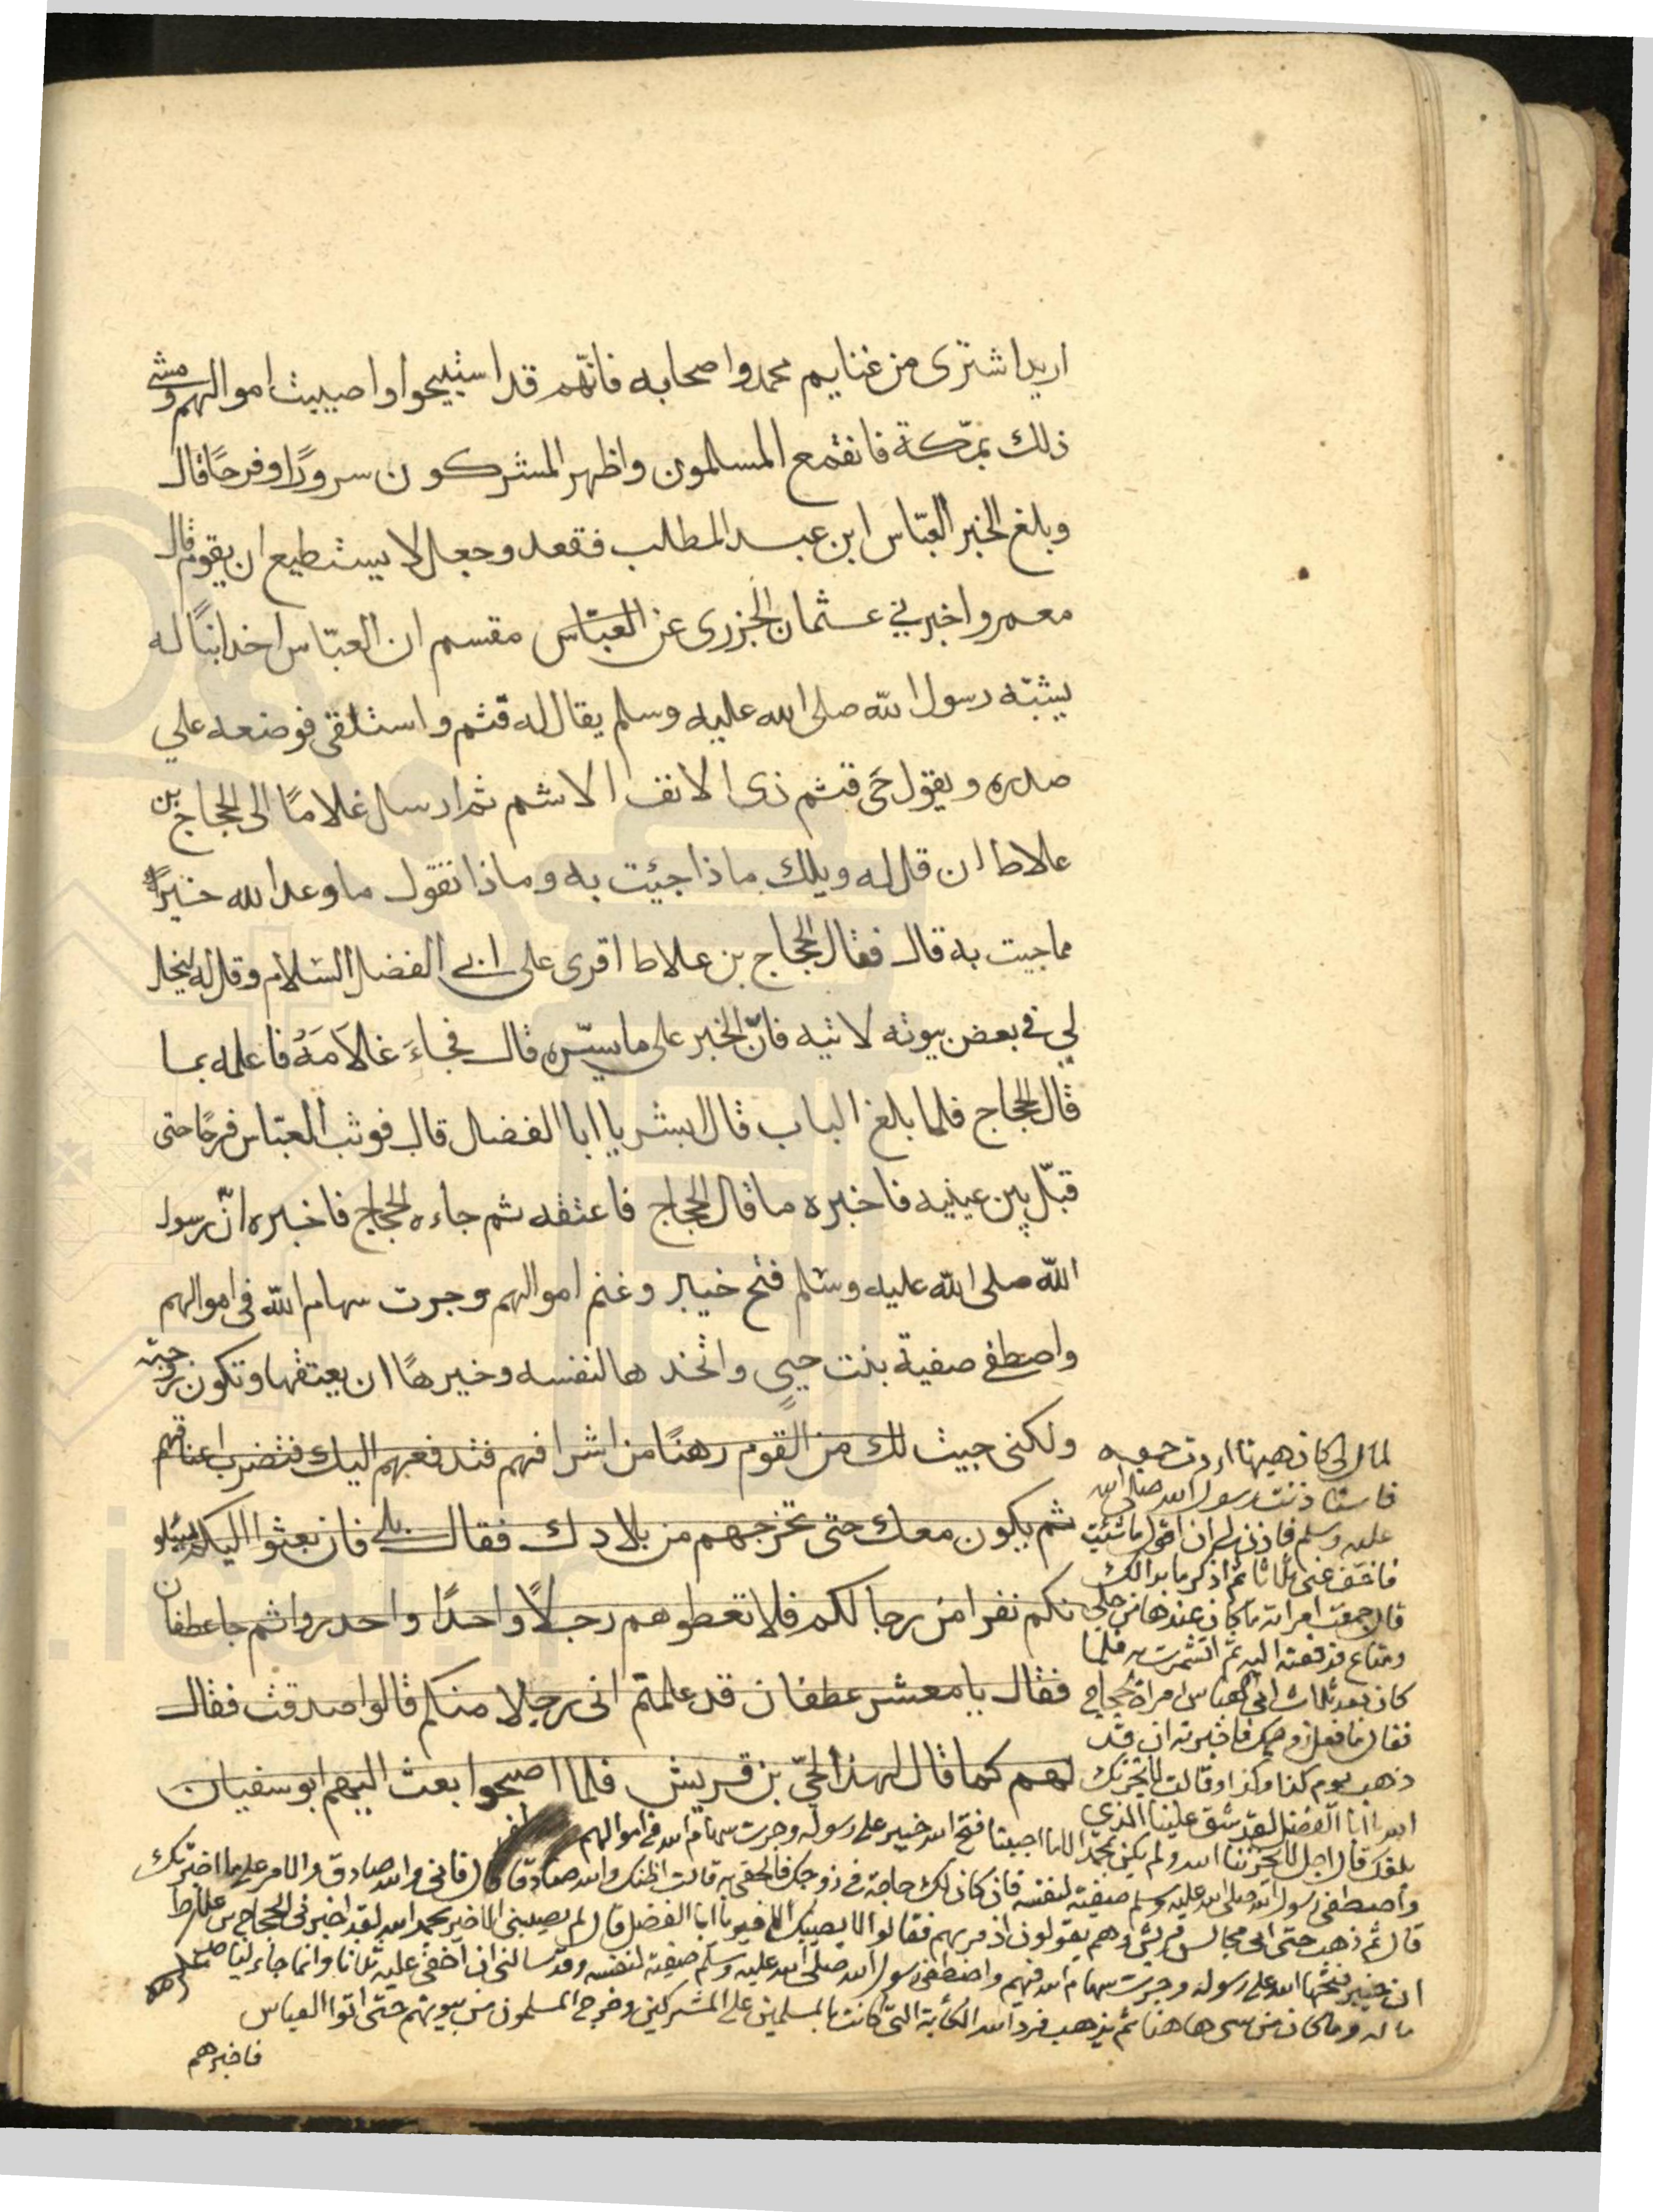 اريد اشترى من غنايم محمد واصحابه فانّهم قد استبيحوا واصيبت اموالهم ومشى
ذلك بمكّة فانقمع المسلمون واظهر المشركون سرورًا وفرحًا قال
وبلغ الخبر العبّاس ابن عبد المطلب فقعد وجعل لا يستطيع ان يقوم قال
معمر واخبرني عثمان الجزرى عن العبّاس مقسم ان العبّاس اخذ ابنًا له
يشبه رسول الله صلى الله عليه وسلم يقال له قثم واستلقى فوضعه على
صدره ويقول حَى قثم ذى الانف الاشم ثم ارسل غلامًا الى الحجاج بن
علاط ان قل له ويلك ماذا جئت به وماذا تقول ما وعد الله خيرًا
مما جيت به قال فقال الحجاج بن علاط اقرى على ابى الفضل السّلام وقل له ليخل
لي في بعض بيوته لاتيه فانّ الخبر على ما يسرّه قال فجاءَ غلامَهُ فاعلمه بما
قال الحجاج فلما بلغ الباب قال ابشر يا ابا الفضل قال فوثب العبّاس فرحًا حتى
قبّل بين عينيه فاخبره ما قال الحجاج فاعتقه ثم جاءه الحجاج فاخبره انّ رسول
الله صلى الله عليه وسلم فتح خيبر وغنم اموالهم وجرت سهام الله في اموالهم
واصطفى صفية بنت حيي واتخذها لنفسه وخيرها ان يعتقها وتكون زوجته
ولكنى جيت لك من القوم رهنًا من اشرافهم فتدفعهم اليك فتضرب اعناقهم
ثم يكون معك حتى تخرجهم من بلادك فقال بلى فان بعثوا اليكم يسئلو
نكم نفرا من رجالكم فلا تعطوهم رجلًا واحدًا واحدروا ثم جا غطفان
فقال يا معشر غطفان قد علمتم انى رجلا منكم قالوا صدقت فقال
لهم كما قال لهذا الحيّ بن قريش فلما اصبحوا بعث اليهم ابو سفيان
لمال لى كان هيهنا اردت جمعه
فاستاذنت رسول الله صلى الله
عليه وسلم فاذن لى ان اقول ما شئت
فاخف عنى ثلاثا ثم اذكر ما بدا لك
قال جمعت امراته ما كان عندها من حلي
ومتاع فدفعته اليه ثم انشمرت به فلما
كان بعد ثلاث اتى العباس امراة الحجاج
فقال ما فعل زوجك فاخبرته ان قد
ذهب يوم كذا وكذا وقالت لا يحزنك
الله يا ابا الفضل لقد شق علينا الذي
بلغك قال اجل لا يحزننا الله ولم يكن بحمد الله الا ما احببنا فتح الله خيبر على رسوله وجرت سهام الله في اموالهم
واصطفى رسول الله صلى الله عليه وسلم صفية لنفسه فان كان لك حاجة في زوجك فالحقى به قالت اظنك والله صادقا قال فانى والله صادق والامر على ما اخبرتك
قال ثم ذهب حتى اتى مجالس قريش وهم يقولون اذ مر بهم فقالوا لا يصيبك الا خير يا ابا الفضل قال لم يصيبنى الا خير بحمد الله لقد اخبرنى الحجاج بن علاط
ان خيبر فتحها الله على رسوله وجرت سهام الله فيهم واصطفى رسول الله صلى الله عليه وسلم صفية لنفسه وقد سالنى ان اخفى عليه ثلاثا وانما جاء لياخذ
ماله وما كان من شى هاهنا ثم يذهب فرد الله الكآبة التي كانت بالمسلمين على المشركين وخرج المسلمون من بيوتهم حتى اتوا العباس
فاخبرهم